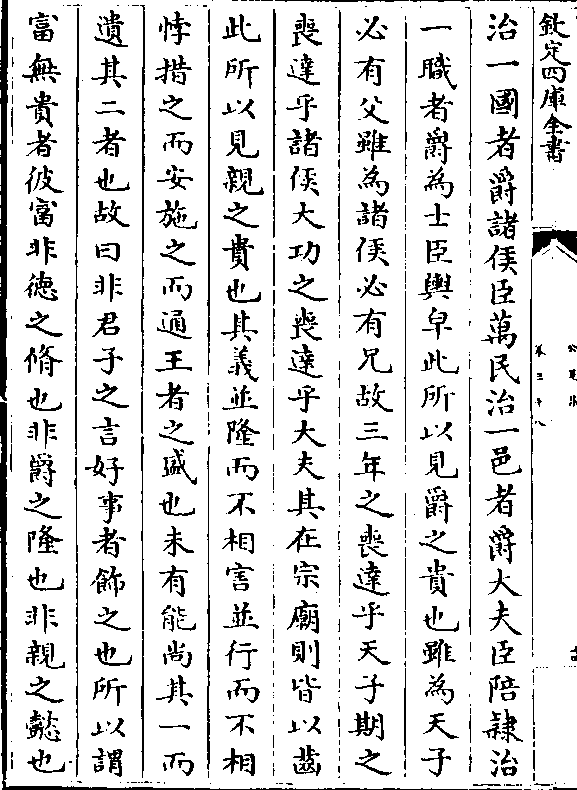 欽定四庫全書
治一國者爵諸侯臣萬民治一邑者爵大夫臣陪隷治
一職者爵為士臣輿皁此所以見爵之貴也雖為天子
必有父雖為諸侯必有兄故三年之喪達乎天子期之
喪達乎諸侯大功之喪達乎大夫其在宗廟則皆以齒
此所以見親之貴也其義並隆而不相害並行而不相
悖措之而安施之而通王者之盛也未有能尚其一而
遺其二者也故曰非君子之言好事者飾之也所以謂
富無貴者彼富非德之脩也非爵之隆也非親之懿也